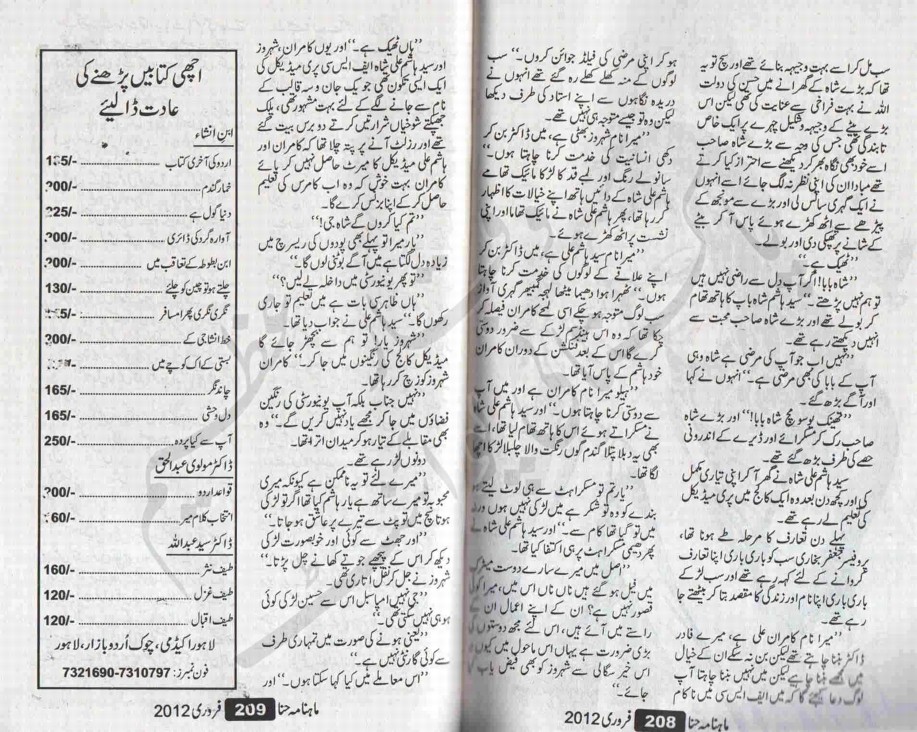 سب مل کر اسے بہت وجیہہ بناتے تھے اور سچ تو یہ
تھا کہ بڑے شاہ کے گھرانے میں حسن کی دولت
اللہ نے بہت فراخی سے عنایت کی تھی لیکن اس
بڑے بیٹے کے وجیہہ و شکیل چہرے پر ایک خاص
تابندگی تھی جس کی وجہ سے بڑے شاہ صاحب
اسے خود بھی نگاہ بھر کر دیکھنے سے احتراز کیا کرتے
تھے مبادا ان کی اپنی نظر نہ لگ جائے اسے انہوں
نے ایک گہری سانس لی اور بڑے سے مونڈھے
پیڑھے سے اٹھ کھڑے ہوئے پاس آ کر بیٹے
کے شانے پر تھپکی دی اور بولے۔
”ٹھیک ہے۔“
”شاہ بابا! اگر آپ دل سے راضی نہیں ہیں
تو ہم نہیں پڑھتے۔“ سید ہاشم شاہ باپ کا ہاتھ تھام
کر بولے تھے اور بڑے شاہ صاحب محبت سے
انہیں دیکھتے رہے۔
”نہیں اب جو آپ کی مرضی ہے شاہ وہی
آپ کے بابا کی بھی مرضی ہے۔“ انہوں نے کہا
اور آگے بڑھ گئے۔
”تھینک یو سو مچ شاہ بابا!“ اور بڑے شاہ
صاحب رک کر مسکرائے اور ڈیرے کے اندرونی
حصے کی طرف بڑھ گئے تھے۔
سید ہاشم علی شاہ نے گھر آ کر اپنی تیاری مکمل
کی اور کچھ دن بعد وہ ایک کالج میں پری میڈیکل
کی تعلیم لے رہے تھے۔
پہلے دن تعارف کا مرحلہ طے ہونا تھا،
پروفیسر جعفر بخاری سب کو باری باری اپنا تعارف
کروانے کے لئے کہہ رہے تھے اور سب لڑکے
باری باری اپنا نام اور زندگی کا مقصد بتا کر بیٹھتے جا
رہے تھے۔
”میرا نام کامران علی ہے، میرے فادر
ڈاکٹر بننا چاہتے تھے لیکن بن نہ سکے ان کے خیال
میں مجھے بننا چاہیے لیکن میں نہیں بننا چاہتا آپ
لوگ دعا کیجئے گا کہ میں ایف ایس سی میں ناکام
ہو کر اپنی مرضی کی فیلڈ جوائن کروں۔“ سب
لوگوں کے منہ کھلے کھلے رہ گئے تھے انہوں نے
دریدہ نگاہوں سے اپنے استاد کی طرف دیکھا
لیکن وہ تو جیسے متوجہ ہی نہیں تھے۔
”میرا نام شہروز بھٹی ہے، میں ڈاکٹر بن کر
دکھی انسانیت کی خدمت کرنا چاہتا ہوں۔“
سانولے رنگ اور لمبے قد کا لڑکا مائیک تھامے
ہاشم علی شاہ کے دائیں ہاتھ اپنے خیالات کا اظہار
کر رہا تھا، پھر ہاشم علی شاہ نے مائیک تھاما اور اپنی
نشست پر اٹھ کھڑے ہوئے۔
”میرا نام سید ہاشم علی ہے، میں ڈاکٹر بن کر
اپنے علاقے کے لوگوں کی خدمت کرنا چاہتا
ہوں۔“ ٹھہرا ہوا دھیما میٹھا لہجہ گھمبیر گہری آواز
سب لوگ متوجہ ہو چکے اسی لمحے کامران فیصلہ کر
چکا تھا کہ وہ اس ہینڈسم لڑکے سے ضرور دوستی
کرے گا اس کے بعد فنکشن کے دوران کامران
خود ہاشم کے پاس آیا تھا۔
”ہیلو میرا نام کامران ہے اور میں آپ
سے دوستی کرنا چاہتا ہوں۔“ اور سید ہاشم علی شاہ
نے مسکراتے ہوئے اس کا ہاتھ تھام لیا تھا، اسے
بھی یہ دبلا پتلا گندم گوں رنگت والا چلبلا لڑکا اچھا
لگا تھا۔
”یار تم تو مسکراہٹ سے ہی لوٹ لیتے ہو
بندے کو وہ تو شکر ہے میں لڑکی نہیں ہوں ورنہ
میں تو گیا تھا کام سے۔“ اور سید ہاشم علی شاہ نے
پھر دھیمی مسکراہٹ پر ہی اکتفا کیا تھا۔
”اصل میں میرے سارے دوست میٹرک
میں فیل ہو گئے ہیں ناں ناں اس میں، میرا کوئی
قصور نہیں ہے؟ ان کے اپنے اعمال ان کے
راستے میں آئے ہیں، اس لئے مجھے دوستوں کی
بڑی ضرورت ہے یہاں اس ماحول میں کیوں نہ
اس خیر سگالی سے شہروز کو بھی فیض یاب کیا
جائے۔“
ماہنامہ حنا 208 فروری 2012
”ہاں ٹھیک ہے۔“ اور یوں کامران، شہروز
اور سید ہاشم علی شاہ ایف ایس سی پری میڈیکل کی
ایک ایسی تکون تھی جو یک جان و سہ قالب کے
نام سے جانے لگے کے لئے بہت مشہور تھی، پلک
جھپکتے شوخیاں شرارتیں کرتے دو برس بیت گئے
تھے اور رزلٹ آنے پر پتہ چلا تھا کہ کامران اور
ہاشم علی میڈیکل کا میرٹ حاصل نہیں کر پائے
کامران بہت خوش کہ وہ اب کامرس کی تعلیم
حاصل کر کے اپنا بزنس کرے گا۔
”تم کیا کرو گے شاہ جی!“
”یار میرا تو پہلے بھی پودوں کی ریسرچ میں
زیادہ دل لگتا ہے میں آگے بوٹنی لوں گا۔“
”تو پھر یونیورسٹی میں داخلہ لے لیں؟“
”ہاں ظاہری بات ہے میں تعلیم تو جاری
رکھوں گا۔“ سید ہاشم علی نے جواب دیا تھا۔
”شہروز یار! تو ہم سے بچھڑ جائے گا
میڈیکل کالج کی رنگینوں میں جا کر۔“ کامران
شہروز کو زچ کر رہا تھا۔
”نہیں جناب بلکہ آپ یونیورسٹی کی رنگین
فضاؤں میں جا کر مجھے یاد نہیں کریں گے۔“ وہ
بھی مقابلے کے تیار ہو کر میدان اترا تھا۔
دونوں لڑ رہے تھے۔
”میرے لئے تو یہ ناممکن ہے کیونکہ میری
محبوبہ تو میرے ساتھ ہے یار ہاشم کیا تھا اگر تو لڑکی
ہوتا سچ میں تو پٹ سے تیرے پر عاشق ہو جاتا۔“
”اور جھٹ سے کوئی اور خوبصورت لڑکی
دیکھ کر اس کے پیچھے جوتے کھانے چل پڑتا۔“
شہروز نے جل کر نقل اتاری تھی۔
”جی نہیں امپاسبل اس سے حسین لڑکی کوئی
ہو ہی نہیں سکتی تھی۔“
”یعنی ہونے کی صورت میں تمہاری طرف
سے کوئی گارنٹی نہیں ہے۔“
”اس معاملے میں کیا کہا سکتا ہوں۔“ اور
اچھی کتابیں پڑھنے کی
عادت ڈالیئے
ابن انشاء
اردو کی آخری کتاب
خمار گندم 200/-
دنیا گول ہے 225/-
آوارہ گرد کی ڈائری 200/-
ابن بطوطہ کے تعاقب میں 200/-
چلتے ہو تو چین کو چلئے 130/-
نگری نگری پھرا مسافر
خط انشا جی کے 200/-
بستی کے اک کوچے میں
چاند نگر 165/-
دل وحشی 165/-
آپ سے کیا پردہ 250/-
ڈاکٹر مولوی عبدالحق
قواعد اردو 200/-
انتخاب کلام میر
ڈاکٹر سید عبداللہ
طیف نثر 160/-
طیف غزل 120/-
طیف اقبال 120/-
لاہور اکیڈمی، چوک اُردو بازار، لاہور
فون نمبرز: 7321690-7310797
ماہنامہ حنا 209 فروری 2012